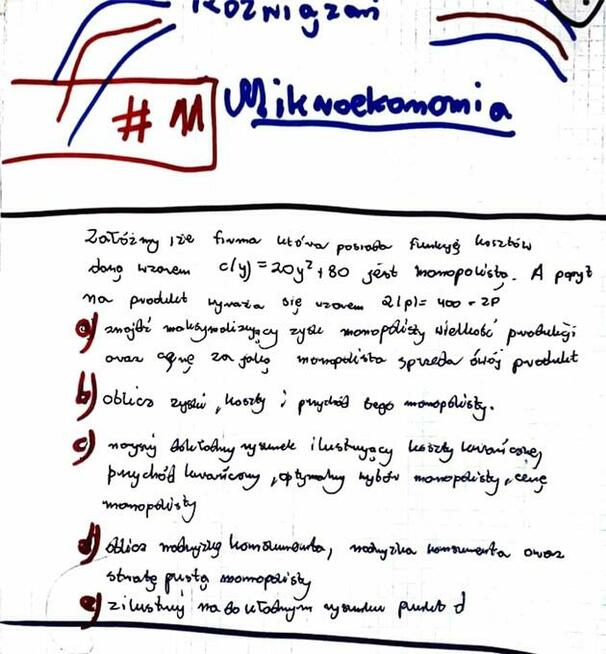 Rozwiązań
#11 Mikroekonomia
Załóżmy że firma która posiada funkcję kosztów
daną wzorem c(y) = 20y² + 80 jest monopolistą. A popyt
na produkt wyraża się wzorem Q(p) = 400 - 2P
a) znajdź maksymalizujący zysk monopolisty wielkość produkcji
oraz cenę za jaką monopolista sprzeda swój produkt
b) oblicz zyski, koszty i przychód tego monopolisty.
c) narysuj dokładny rysunek ilustrujący koszty krańcowe,
przychód krańcowy, optymalny wybór monopolisty, cenę
monopolisty
d) oblicz nadwyżkę konsumenta, nadwyżka konsumenta oraz
stratę pustą monopolisty
e) zilustruj na dokładnym rysunku punkt d